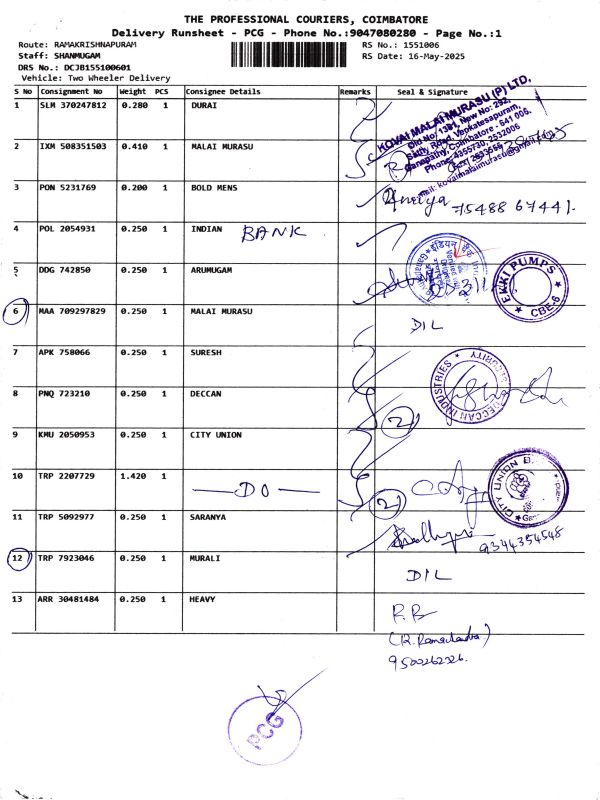 THE PROFESSIONAL COURIERS, COIMBATORE
Delivery Runsheet - PCG - Phone No.:9047080280 - Page No.:1
Route: RAMAKRISHNAPURAM
RS No.: 1551006
Staff: SHANMUGAM
RS Date: 16-May-2025
DRS No.: DCJB155100601
Vehicle: Two Wheeler Delivery
S No Consignment No Weight PCS Consignee Details Remarks Seal & Signature
1 SLM 370247812 0.280 1 DURAI
KOVAI MALAI MURASU (P) LTD.
Old No: 1391, New No: 292,
Sathy Road, Venkatesapuram,
Ganapathy, Coimbatore - 641 006.
Phone: 4355730, 2532006
2 IXM 508351503 0.410 1 MALAI MURASU
3 PON 5231769 0.200 1 BOLD MENS
75488 67441.
4 POL 2054931 0.250 1 INDIAN BANK
5 DDG 742850 0.250 1 ARUMUGAM
EKKI PUMPS
CBE-6
6 MAA 709297829 0.250 1 MALAI MURASU
DIL
7 APK 758066 0.250 1 SURESH
8 PNQ 723210 0.250 1 DECCAN
DECCAN INDUSTRIES
SECURITY
2
9 KMU 2050953 0.250 1 CITY UNION
10 TRP 2207729 1.420 1 -DO-
CITY UNION B
2
11 TRP 5092977 0.250 1 SARANYA
9344354548
12 TRP 7923046 0.250 1 MURALI
DIL
13 ARR 30481484 0.250 1 HEAVY
R.B
(R. Ramachandra)
PCG